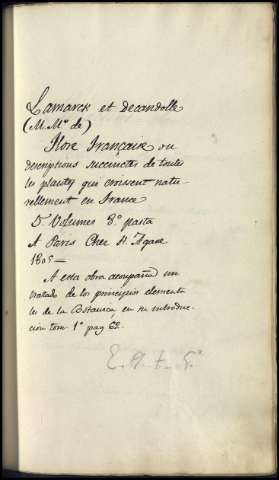 Lamarck et Decandolle
(M. Mrs de)
Flore française ou
descriptions succinctes de toutes
les plantes qui croissent natu-
rellement en france
5. Volumes 8º pasta
A Paris Chez H. Agasse
1805 =
A esta obra acompaña un
tratado de los principios elementa
les de la Botanica en su introduc-
cion tom. 1º pag 62.
E. 9. t. 5ª